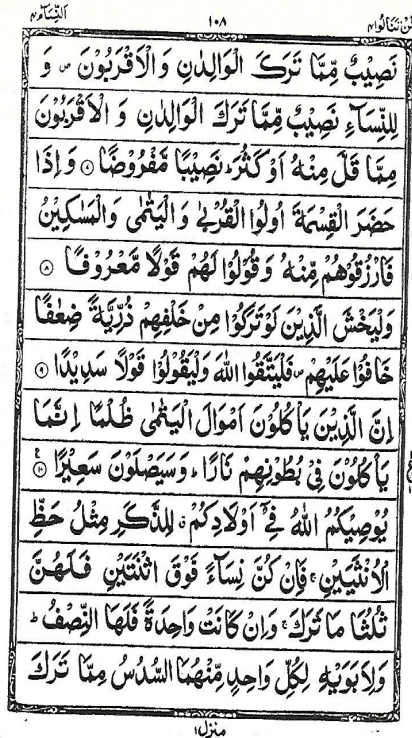 النساء ۴ ۱۰۸ لن تنالوا ۴
نَصِيْبٌ مِّمَّا تَرَكَ الْوَالِدٰنِ وَالْاَقْرَبُوْنَ ص وَ
لِلنِّسَآءِ نَصِيْبٌ مِّمَّا تَرَكَ الْوَالِدٰنِ وَ الْاَقْرَبُوْنَ
مِمَّا قَلَّ مِنْهُ اَوْ كَثُرَ ؕ نَصِيْبًا مَّفْرُوْضًا ۷ وَ اِذَا
حَضَرَ الْقِسْمَةَ اُولُوا الْقُرْبٰى وَ الْيَتٰمٰى وَ الْمَسٰكِيْنُ
فَارْزُقُوْهُمْ مِّنْهُ وَ قُوْلُوْا لَهُمْ قَوْلًا مَّعْرُوْفًا ۸
وَلْيَخْشَ الَّذِيْنَ لَوْ تَرَكُوْا مِنْ خَلْفِهِمْ ذُرِّيَّةً ضِعٰفًا
خَافُوْا عَلَيْهِمْ ص فَلْيَتَّقُوا اللّٰهَ وَلْيَقُوْلُوْا قَوْلًا سَدِيْدًا ۹
اِنَّ الَّذِيْنَ يَاْكُلُوْنَ اَمْوَالَ الْيَتٰمٰى ظُلْمًا اِنَّمَا
يَاْكُلُوْنَ فِيْ بُطُوْنِهِمْ نَارًا ؕ وَ سَيَصْلَوْنَ سَعِيْرًا ۱۰ ع
يُوْصِيْكُمُ اللّٰهُ فِيْٓ اَوْلَادِكُمْ ق لِلذَّكَرِ مِثْلُ حَظِّ
الْاُنْثَيَيْنِ ج فَاِنْ كُنَّ نِسَآءً فَوْقَ اثْنَتَيْنِ فَلَهُنَّ
ثُلُثَا مَا تَرَكَ ج وَاِنْ كَانَتْ وَاحِدَةً فَلَهَا النِّصْفُ ؕ
وَلِاَبَوَيْهِ لِكُلِّ وَاحِدٍ مِّنْهُمَا السُّدُسُ مِمَّا تَرَكَ
منزل ۱